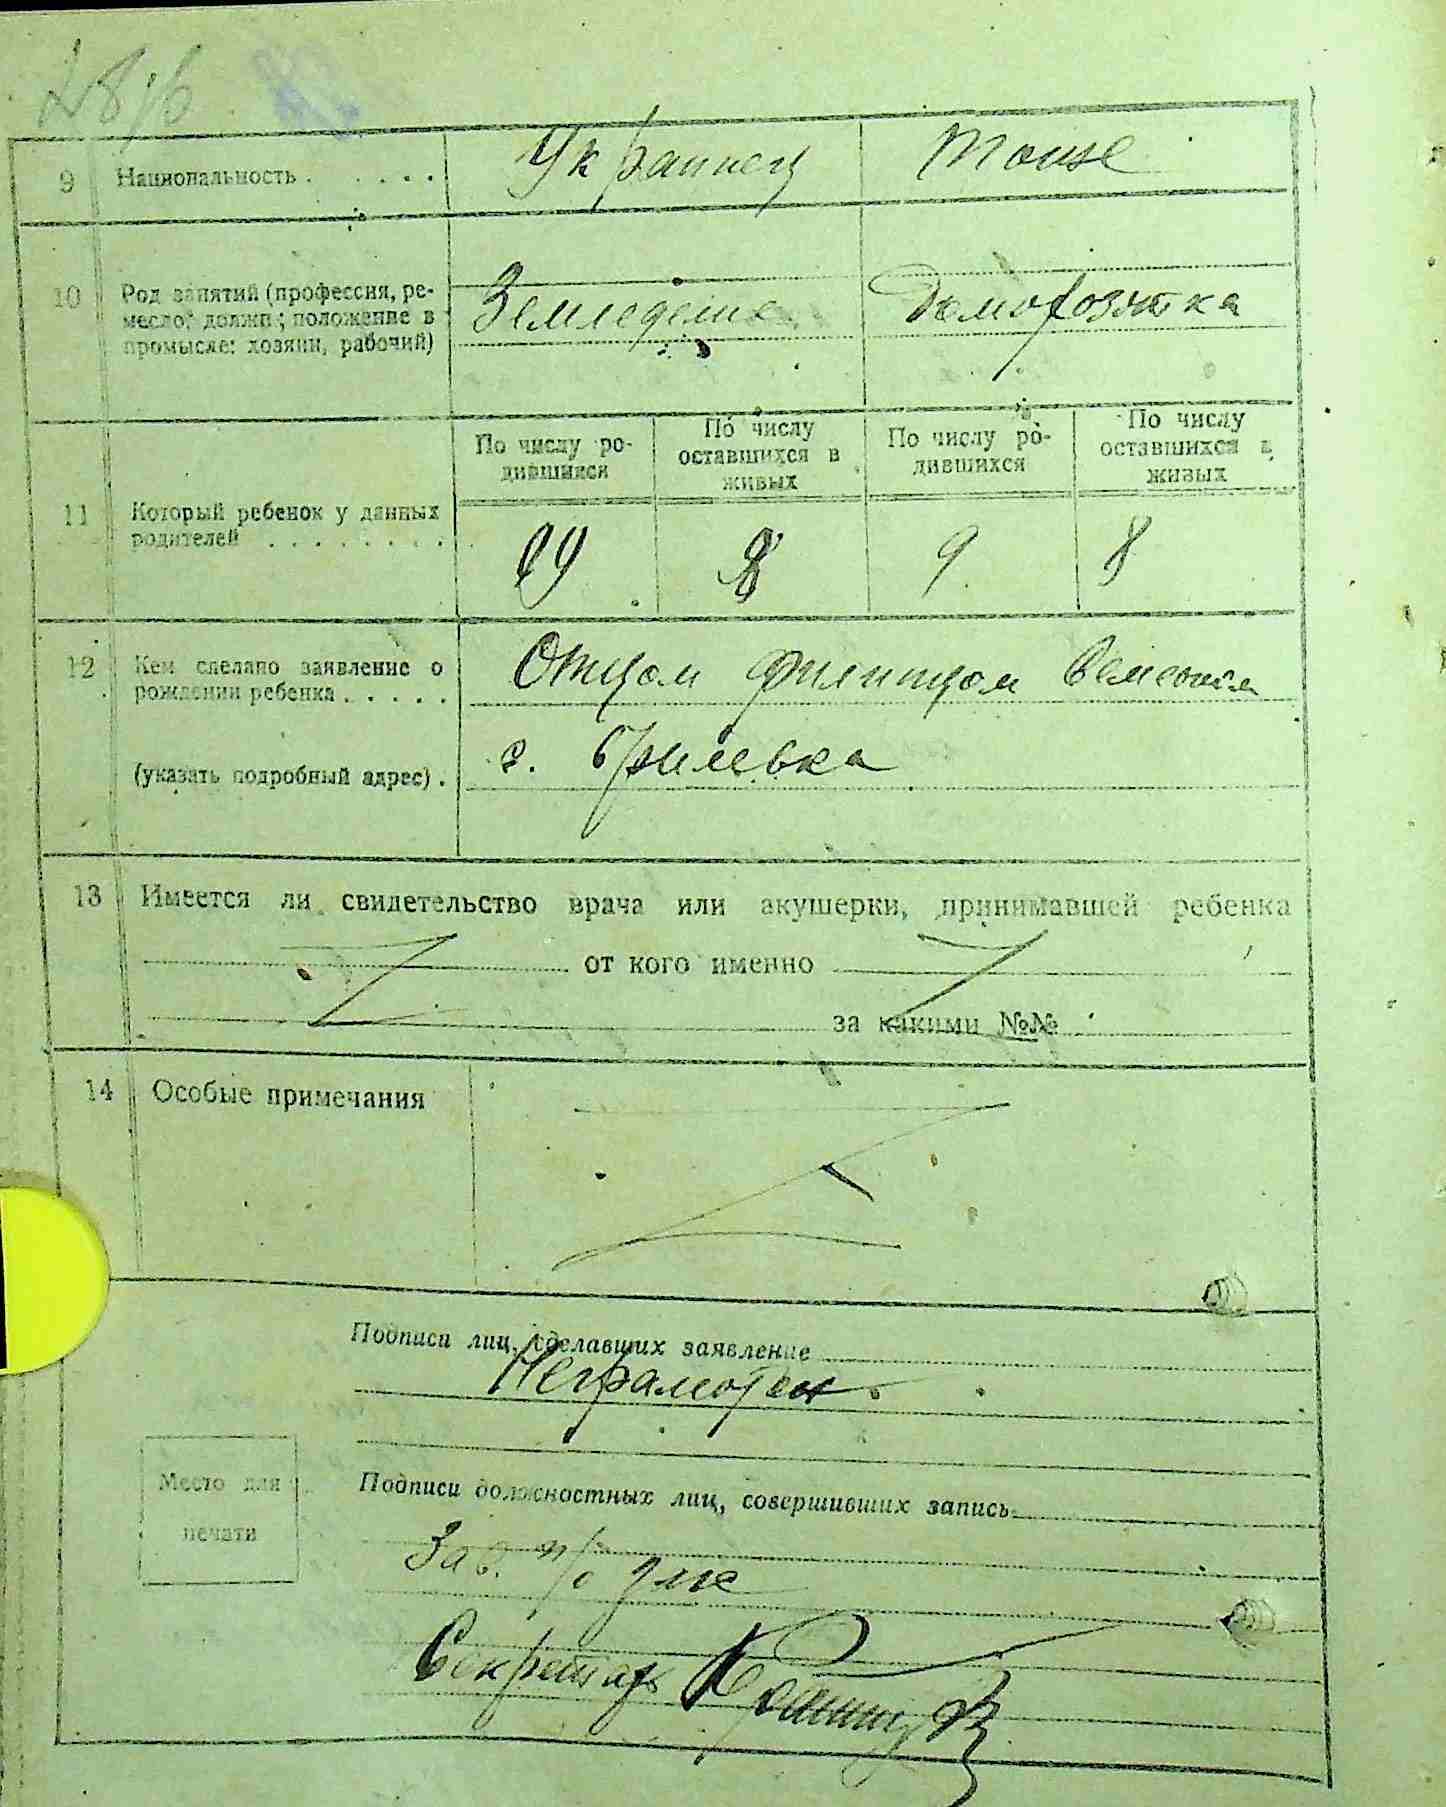 9 Национальность . . . . . Украинец тоже
10 Род занятий (профессия, ре-
месло; должн.; положение в
промысле: хозяин, рабочий)
Земледелие Домохозяйка
11 Который ребенок у данных
родителей . . . . . . . .
По числу ро-
дившихся
По числу
оставшихся в
живых
По числу ро-
дившихся
По числу
оставшихся в
живых
9 8 9 8
12 Кем сделано заявление о
рождении ребенка . . . . .
Отцом
(указать подробный адрес) .
с. Брилевка
13 Имеется ли свидетельство врача или акушерки, принимавшей ребенка
от кого именно
за какими №№
14 Особые примечания
Подписи лиц, сделавших заявление
Неграмотен.
Место для
печати
Подписи должностных лиц, совершивших запись
Зав. п/о
Секретарь